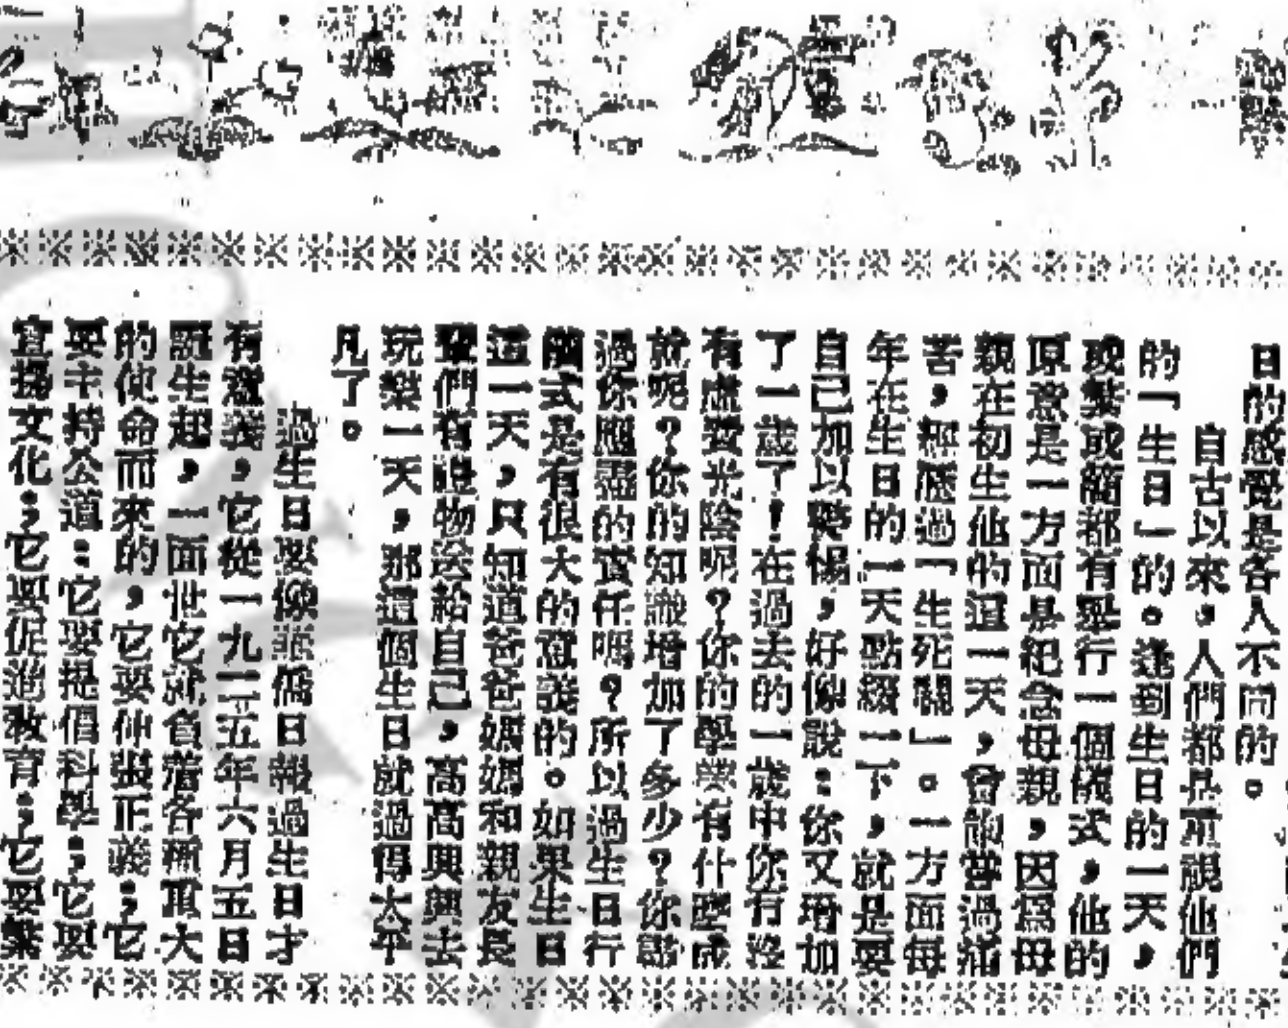 日的感覺是各人不同的。
自古以來，人們都是重視他們
的「生日」的。逢到生日的一天，
或繁或簡都有舉行一個儀式，他的
原意是一方面是紀念母親，因爲母
親在初生他的這一天，會飽嘗過痛
苦，經歷過「生死關」。一方面每
年在生日的一天點綴一下，就是要
自己加以警惕，好像說：你又增加
了一歲了！在過去的一歲中你有沒
有虛費光陰呢？你的學業有什麼成
就呢？你的知識增加了多少？你
過你應盡的責任嗎？所以過生日行
個式是有很大的意義的。如果生日
這一天，只知道爸爸媽媽和親友長
輩們有禮物送給自己，高高興興去
玩樂一天，那這個生日就過得太平
凡了。
過生日要像華僑日報過生日才
有意義，它從一九二五年六月五日
誕生起，一面世它就負着各種重大
的使命而來的，它要伸張正義；它
要主持公道：它要提倡科學；它要
宣揚文化；它要促進教育；它要繁